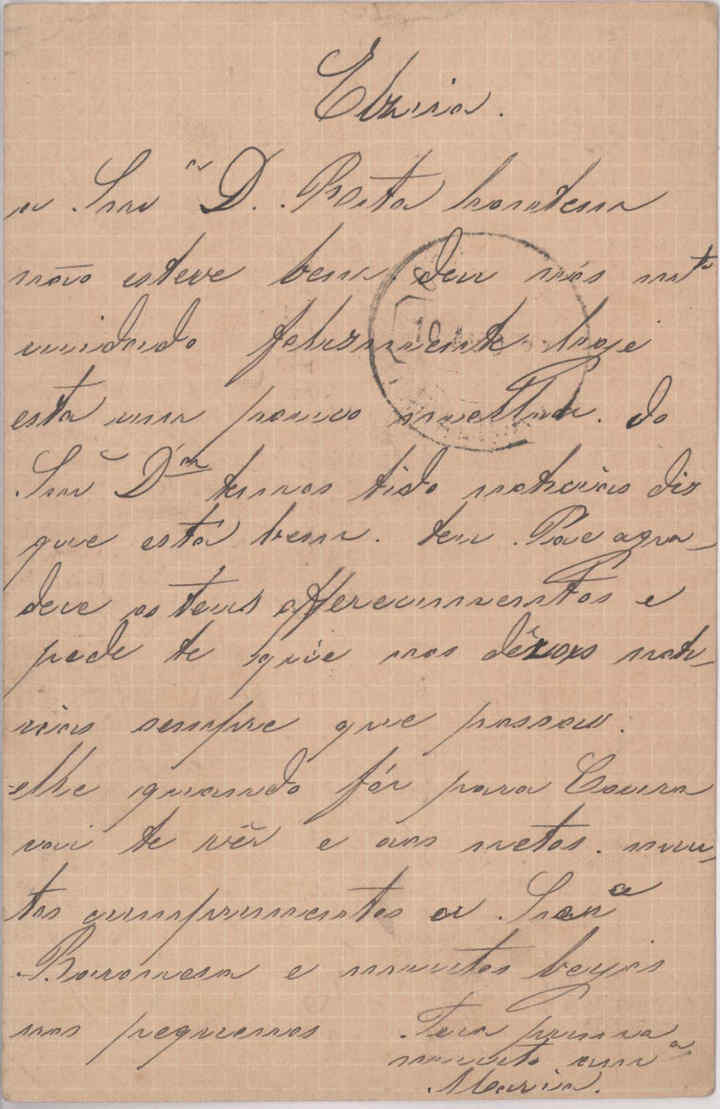 Elzira.
a Snrª D. Rita hontem
não esteve bem deu nós mtº
cuidado felizmente hoje
está um pouco melhor. do
Snr D.or temos tido noticias diz
que está bem. teu Pae agra-
dece os teus offerecimentos e
pede te que nos dês noti-
cias sempre que possas.
elle quando fôr para Coura
vai te vêr e aos netos. mui-
tos cumprimentos a Snrª
Baroneza e muitos beijos
aos pequenos Tua prima
muito amª
Maria.
10